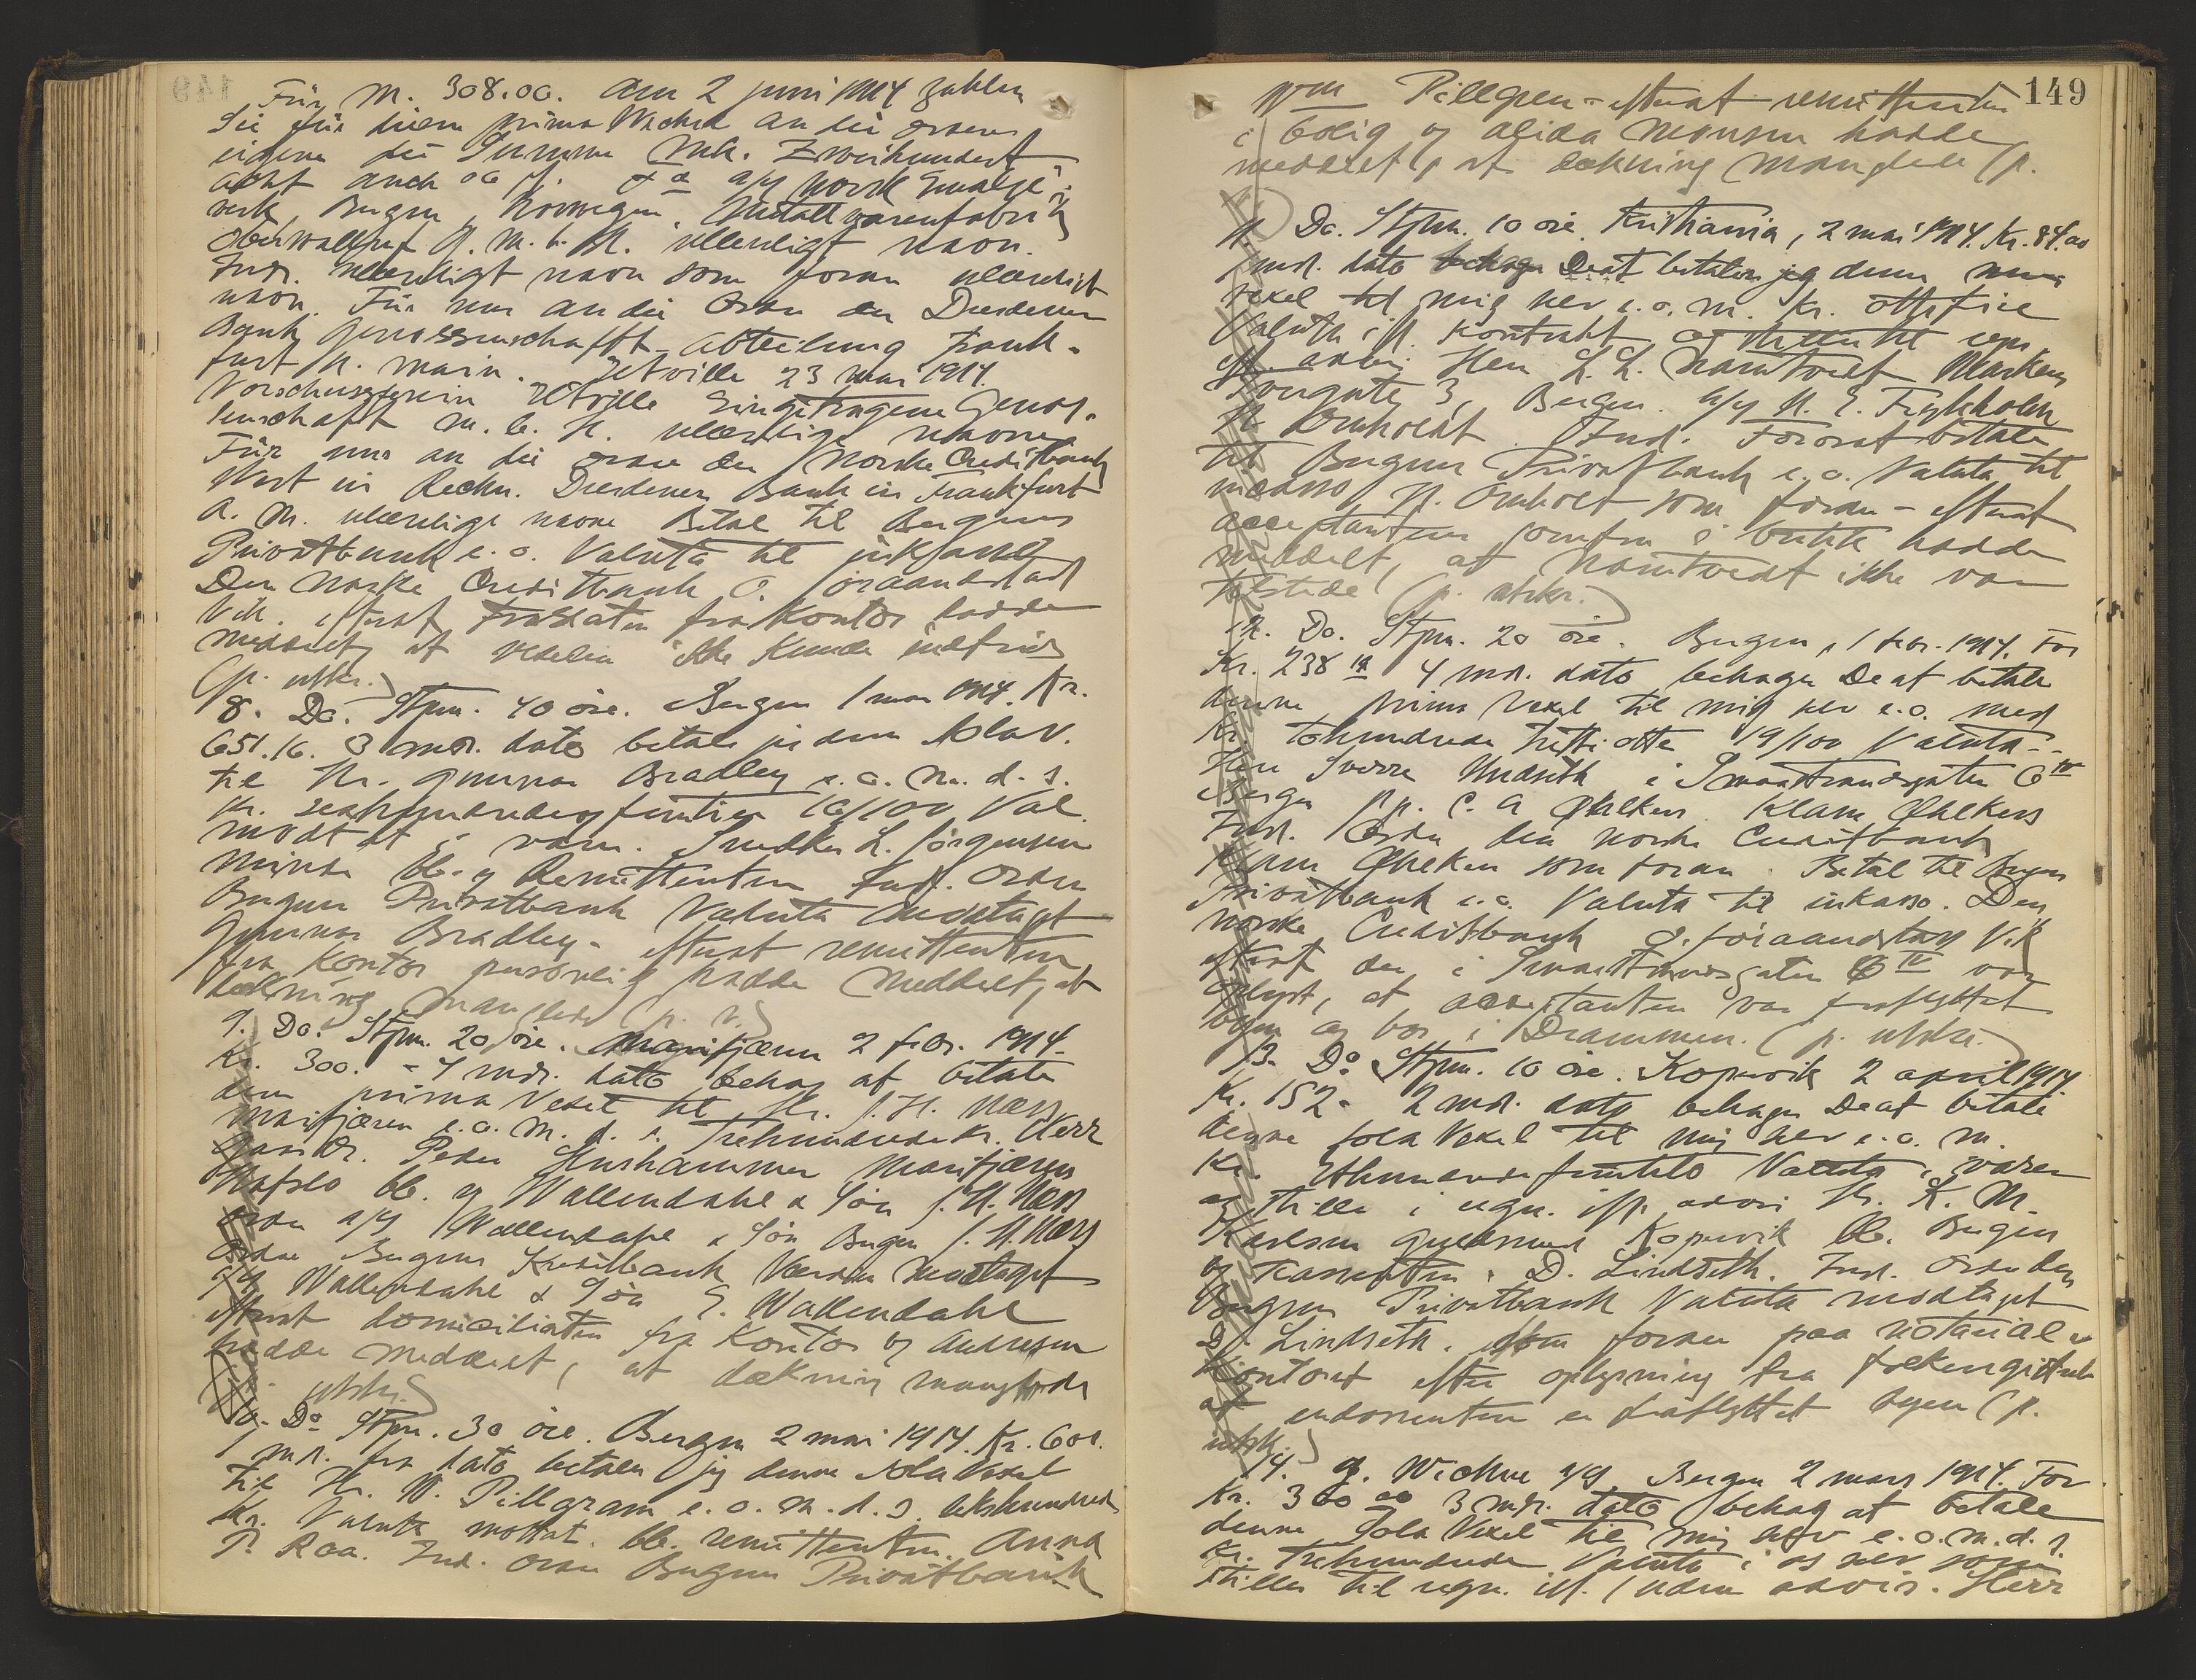 Für M. 308.00. Am 2 juni 1914 zahlen
Sie für diesen prima Wechsel an die ordre
eigene die Summe Mk.
acht auch 06 pf. a/s Norsk Emalje
verk, Bergen, Norwegen. Metallwarenfabrik
Oberwalluf G. m. b. H. ulæseligt navn.
Ind. ulæseligt navn som foran ulæseligt
navn. Für uns an die Ordre der Dresdener
Bank Genossenschafft-Abteilung Frank-
furt A. Main. Eltville 23 mai 1914.
Vorschussverein Eltville Eingetragene Genos-
senschaft m. b. H. ulæselige navne
Für uns an die ordre der Norske Creditbank
Wert in Rechn. Dresdener Bank in Frankfurt
A. M. ulæselige navne Betal til Bergens
Privatbank e. o. Valuta til inkasso
Den norske Creditbank O. Joraandstad
Vik. efterat Trassaten fra Kontor hadde
meddelt, at vekselen ikke kunde indfries
(p. utskr.)
8. Do. Stpm. 40 øre. Bergen 1 mars 1914. Kr.
651.16. 3 mdr. dato betaler jeg denne Sola V.
til Hr. Gunnar Bradley e. o. m. d. s.
Kr. sekshundredeogfemtien 16/100 Val.
modtat i varer. Snedker L. Jørgensen
Minde bb. og Remittenten Ind. Ordre
Bergens Privatbank Valuta modtaget
Gunnar Bradley - efterat remittenten
fra Kontor personlig hadde meddelt, at
dækning manglede (p. u.)
9. Do. Stpm. 20 øre. Marifjæren 2 febr. 1914.
Kr. 300. - 4 mdr. dato behag at betale
denne prima Veksel til Hr. J. H. Næss
Marifjæren e. o. m. d. s. Trehundrede kr. Herr
Peder Marifjæren
Hafslo bb. og Wallendahl & Søn J. H. Næss
ordre a/s Wallendahl & Søn Bergen J. H. Næss
Ordre Bergens Kreditbank Værdien modtaget
a/s Wallendahl & Søn E. Wallendahl
efterat domiciliaten fra Kontor og Andresen
hadde meddelt, at dækning manglede
(p. utskr.)
10. Do. Stpm. 30 øre. Bergen 2 mai 1914. Kr. 600.
1 md. fra dato betaler jeg denne Sola Veksel
til Hr. W. Pillgram e. o. m. d. s. sekshundrede
Kr. Valuta mottat. bb. remittenten. Anna
P. Raa. Ind. ordre Bergens Privatbank
149
Wm Pillgren - efterat remittenten
i bolig og Alida Monsen hadde
meddelt, at dækning manglede (p.
11. Do. Stpm. 10 øre. Kristiania, 2 mai 1914. Kr. 84.00
1 md. dato behager De at betaler jeg denne min
vexel til mig selv e. o. m. Kr. ottifire
Valuta ifl. kontrakt og stilles til regn.
ifl. advis Herr L. L. Namtvedt Marken
3, Bergen. a/s
H. Omholdt. Ind. Forosat betale
til Bergens Privatbank e. o. Valuta til
incasso H. Omholt som foran - efterat
acceptanten jomfru i butik hadde
meddelt, at Namtvedt ikke var
tilstede (p. utskr.)
12. Do. Stpm. 20 øre. Bergen, 1 febr. 1914. For
Kr. 238 19 4 mdr. dato behager De at betale
denne prima Vexel til mig selv e. o. med
Kr. Tohundrede tretti otte 19/100 Valuta --
Herr Sverre Hudseth i Smaastrandgaten 6 IV
Bergen p.p. C. A. Øhlkers. Klam Øhlkers
Ind. Ordre den norske Creditbank
Klam Øhlkers som foran. Betal til Bergens
Privatbank e. o. Valuta til inkasso. Den
norske Creditbank O. Joraandstad Vik
efterat der i Smaastrandsgaten 6 IV var
oplyst, at acceptanten var fraflyttet
byen og bor i Drammen. (p. utskr.)
13. Do. Stpm. 10 øre. Kopervik 2 april 1914
Kr. 152 - 2 mdr. dato behager De at betale
denne sola Vexel til mig selv e. o. m.
Kr. Ethundredefemtito Valuta i varer
og stilles i regn. ifl. advis Hr. K. M.
Karlsen Gullsmed Kopervik bb. Bergen
og trassenten. D. Lindseth. Ind. Ordre den
Bergens Privatbank Valuta modtaget
D. Lindseth. som foran paa notarial-
kontoret efter oplysning fra folkeregistret
at endossenten er fraflyttet byen (p.
utskr.)
14. G. Wichne a/s Bergen 2 mars 1914. For
Kr. 300 00 3 mdr. dato behag at betale
denne Sola Vexel til mig selv e. o. m. d. s.
Kr. Trehundrede Valuta i os selv som
stilles til regn. ifl. / uden advis. Herr